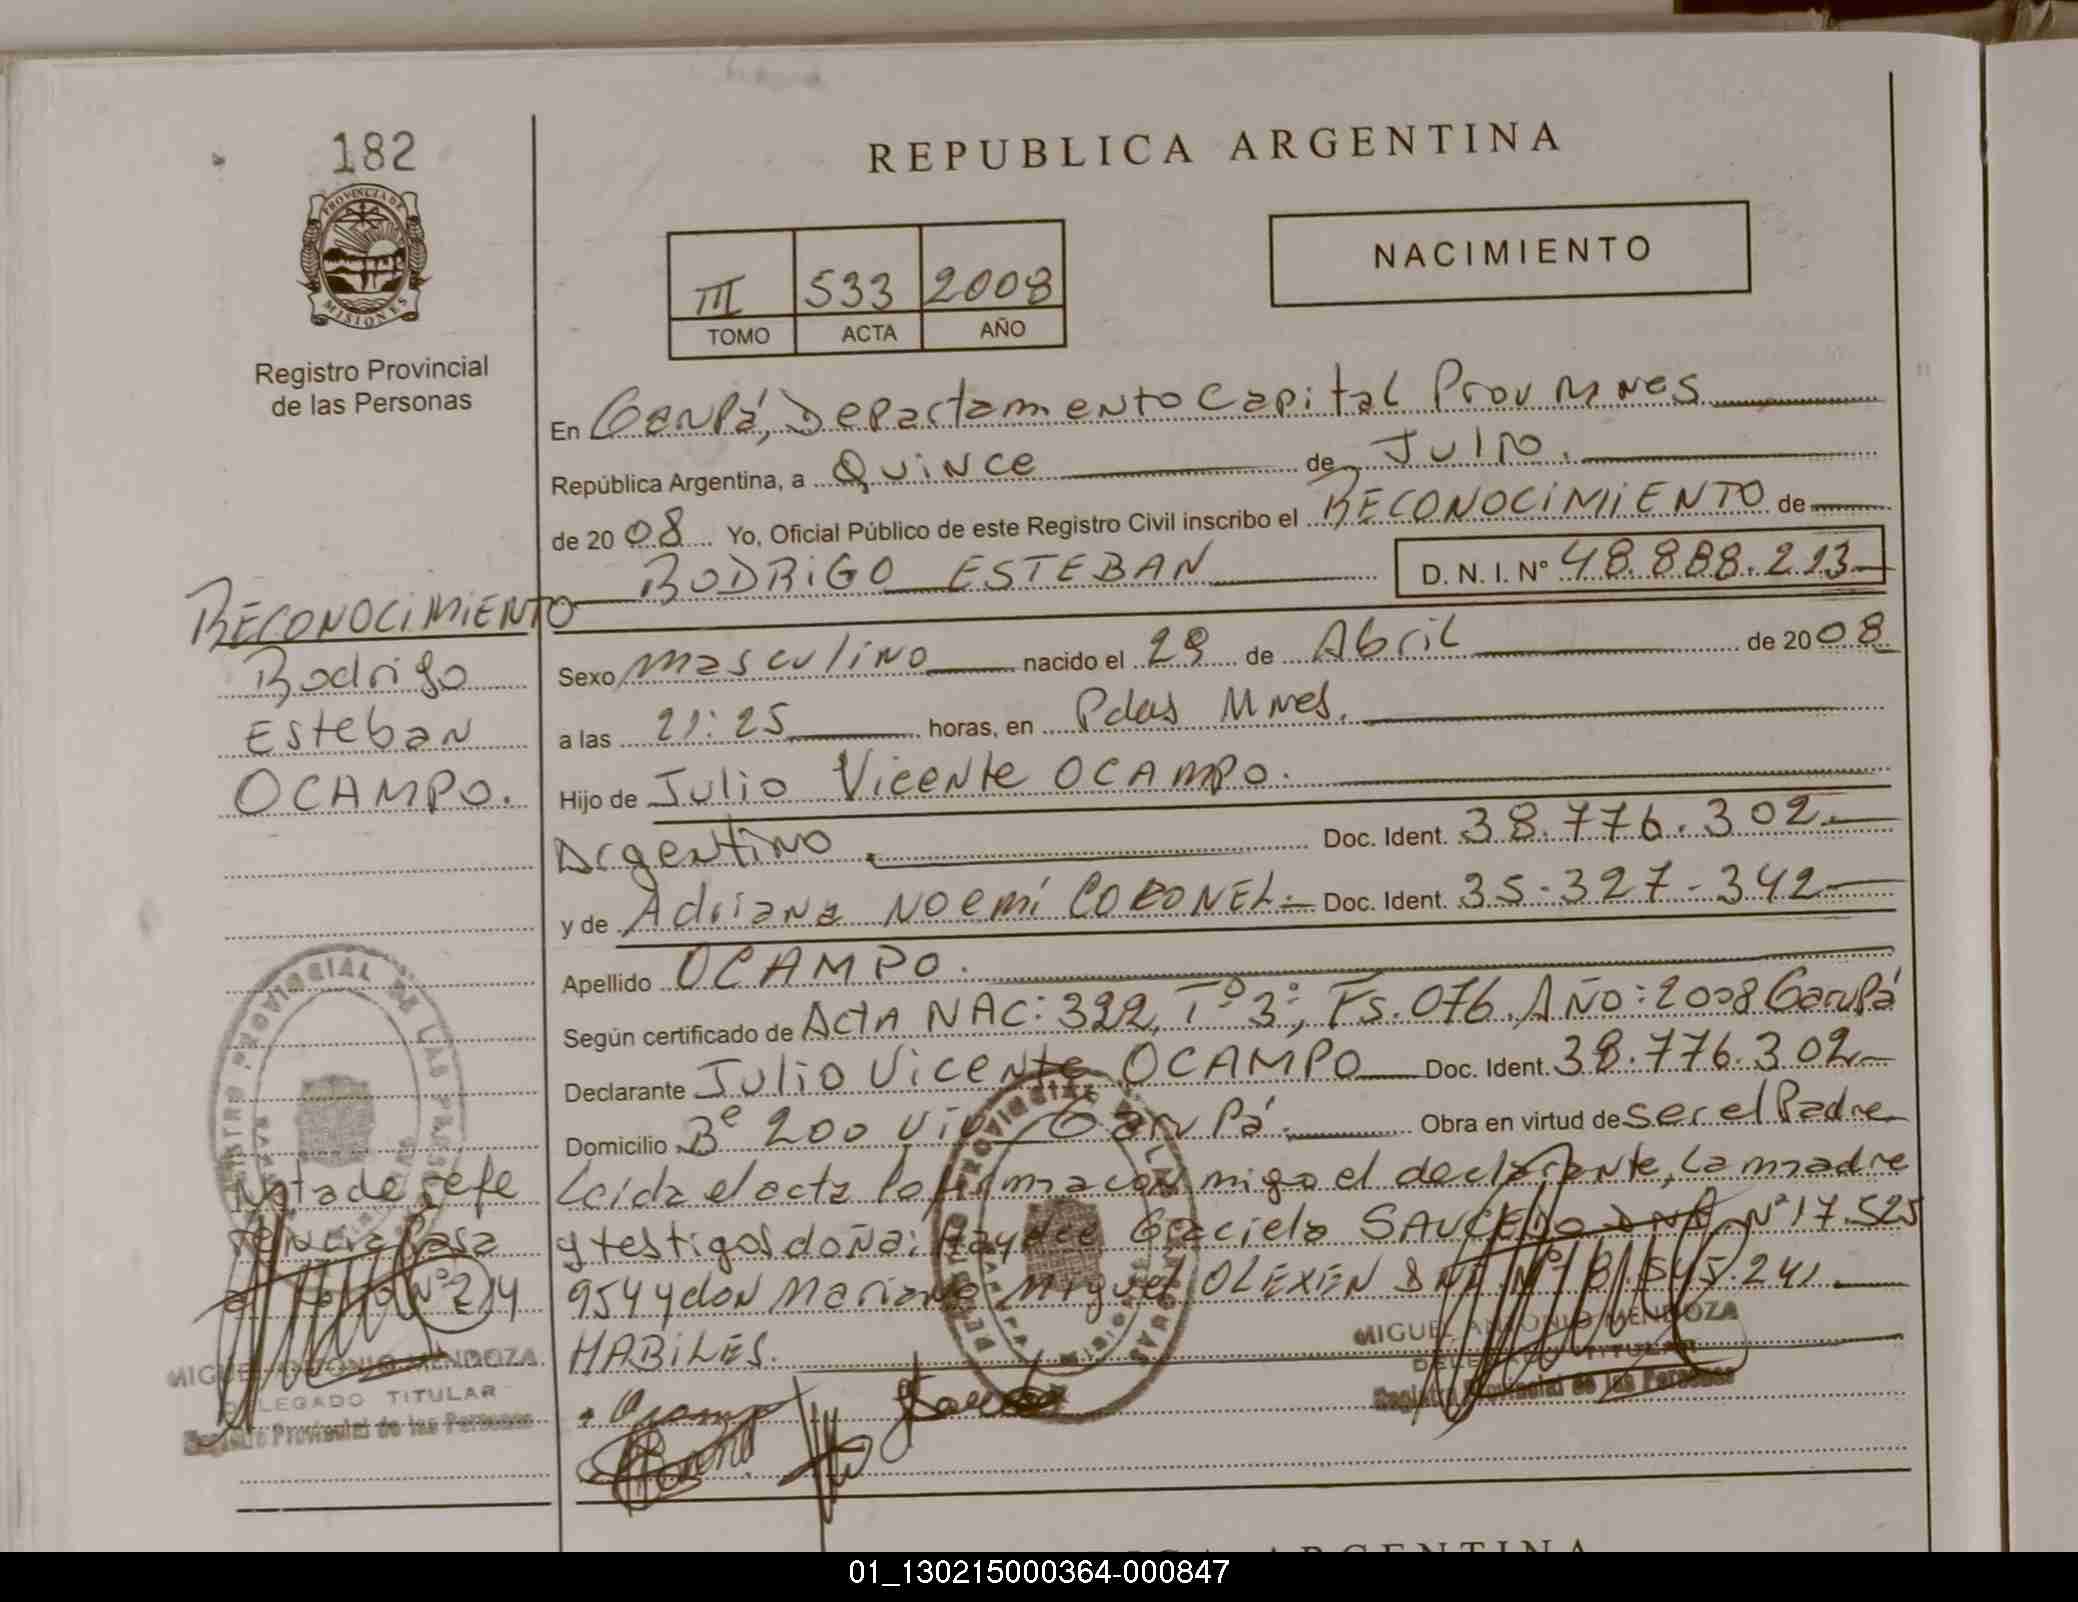 182
PROVINCIA DE
MISIONES
Registro Provincial
de las Personas
REPUBLICA ARGENTINA
III 533 2008
TOMO ACTA AÑO
NACIMIENTO
En Garupá, Departamento Capital Prov Mnes
República Argentina, a Quince de Julio.
de 2008 Yo, Oficial Público de este Registro Civil inscribo el RECONOCIMIENTO de
RODRIGO ESTEBAN D. N. I. Nº 48.888.213
RECONOCIMIENTO
Rodrigo
Esteban
OCAMPO.
Sexo masculino nacido el 29 de Abril de 2008
a las 21:25 horas, en Pdas Mnes.
Hijo de Julio Vicente OCAMPO.
Argentino. Doc. Ident. 38.776.302
y de Adriana Noemí CORONEL Doc. Ident. 35.327.342
Apellido OCAMPO.
Según certificado de Acta NAC: 322, Tº 3º, Fs. 076. AÑO: 2008 Garupá
Declarante Julio Vicente OCAMPO Doc. Ident. 38.776.302
Domicilio Bº 200 Viv Garupá. Obra en virtud de ser el Padre
Leida el acta la firma con migo el declarante, la madre
y testigos doña: Haydee Graciela SAUCEDO DNI Nº 17.525
954 y don Mariano Miguel OLEXEN DNI Nº 18.545.241
HABILES.
Nota de Refe
rencia Pasa
al Folio Nº 214
MIGUEL ANTONIO MENDOZA
DELEGADO TITULAR
Registro Provincial de las Personas
MIGUEL ANTONIO MENDOZA
DELEGADO TITULAR
Registro Provincial de las Personas
Ocampo
ARGENTINA
01_130215000364-000847